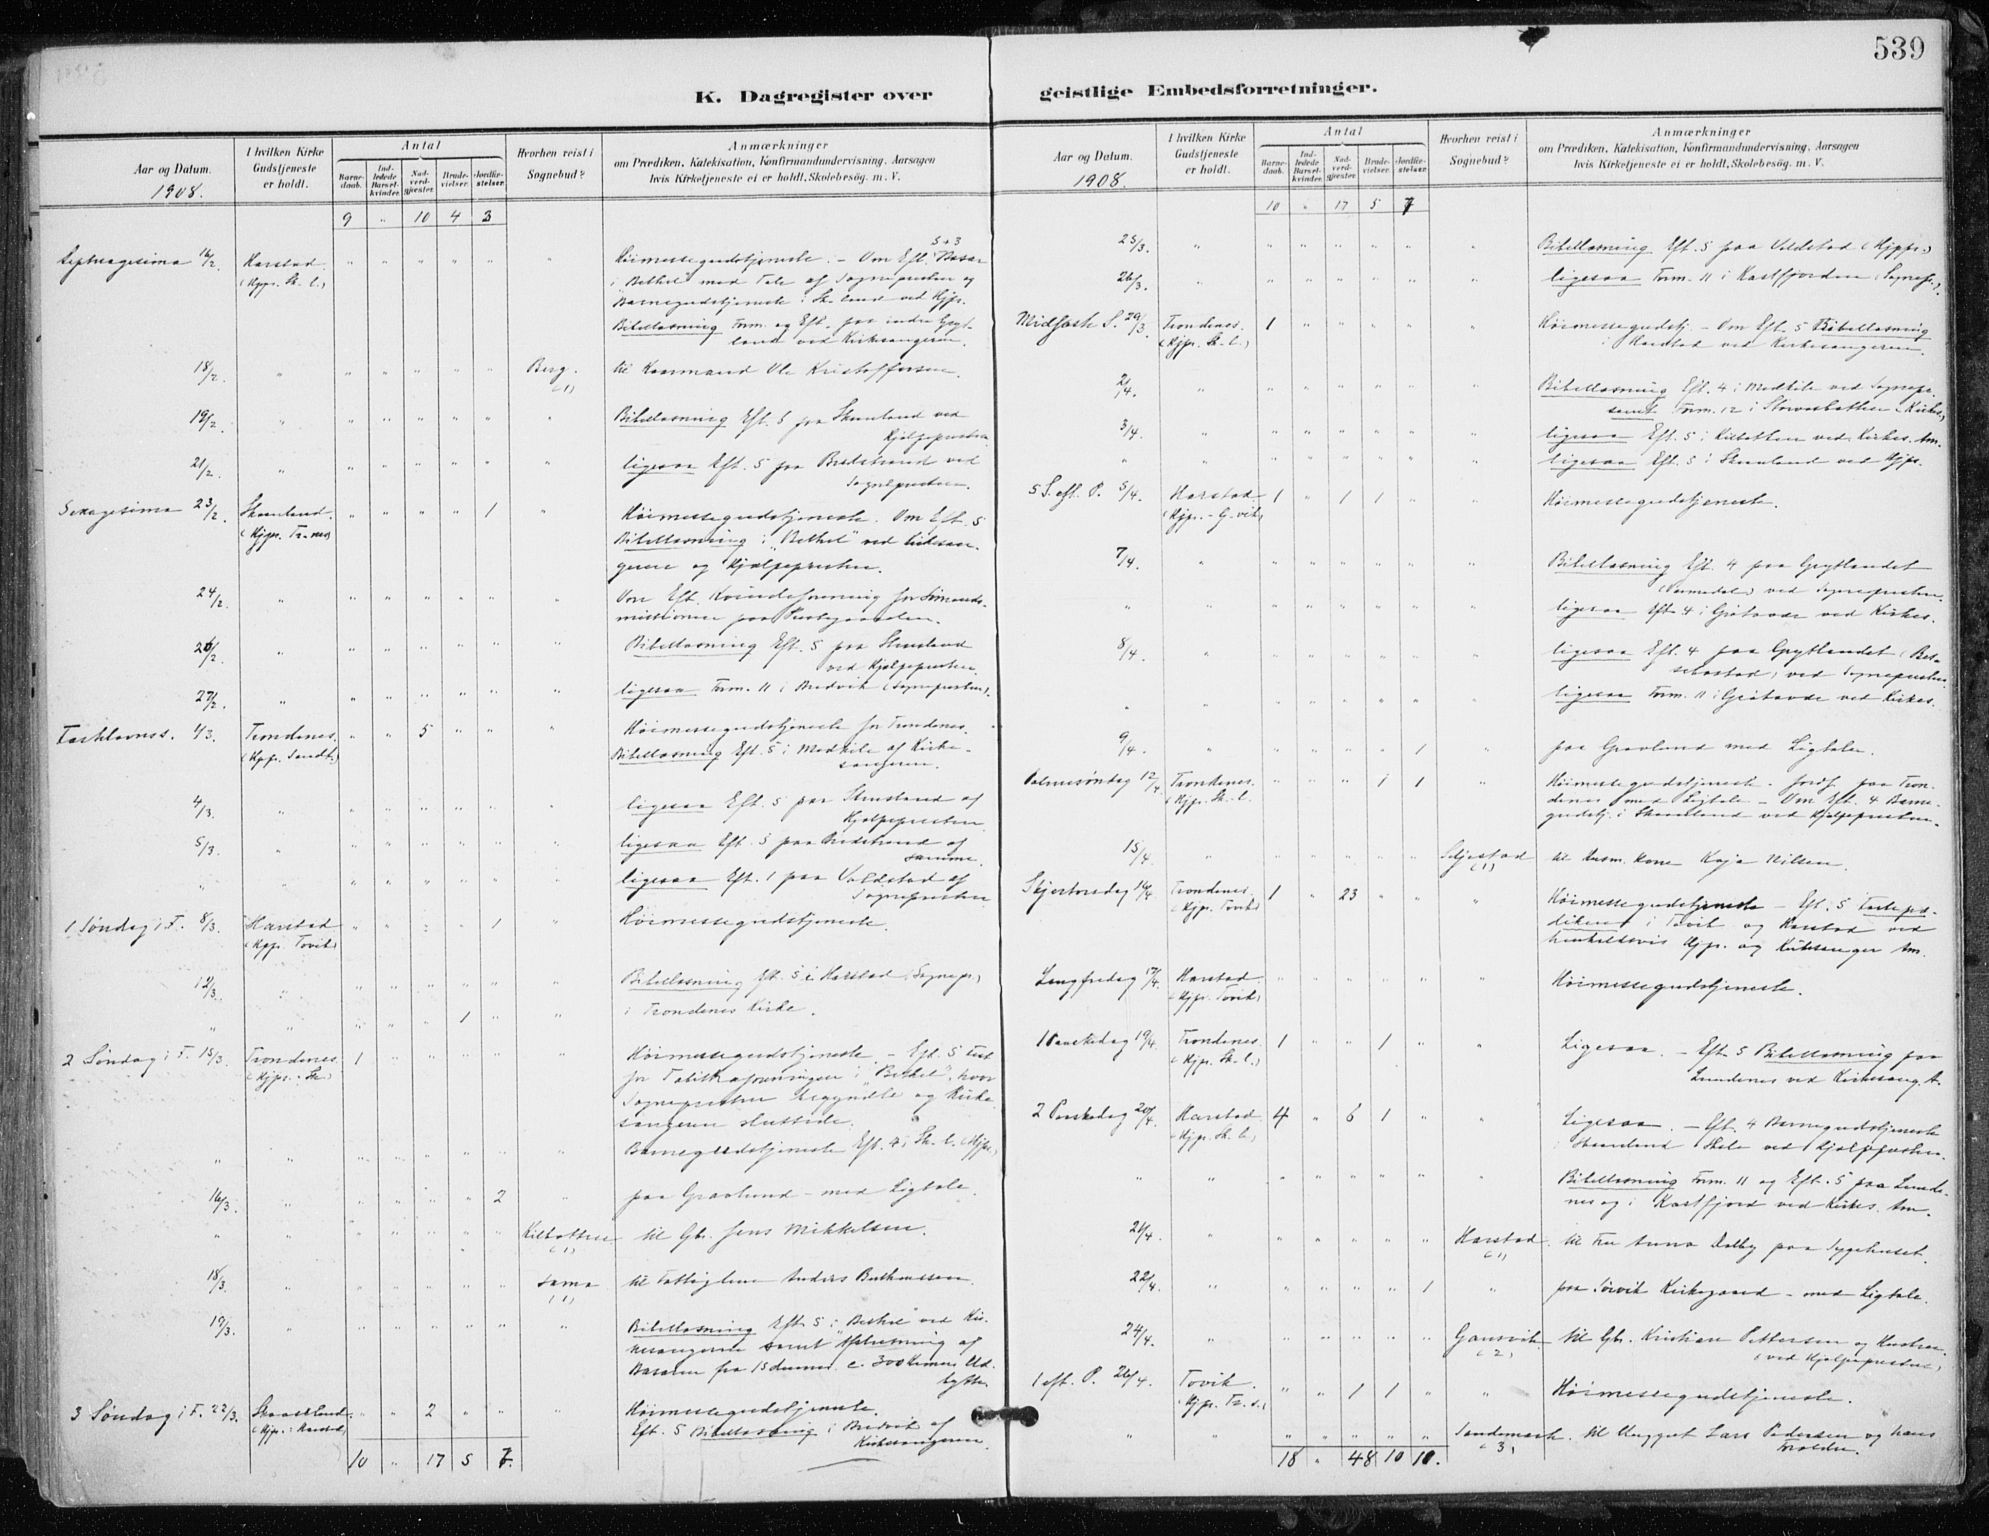 539
K. Dagregister over
Aar og Datum.
1908.
I hvilken Kirke
Gudstjeneste
er holdt.
Antal
Barne-
daab.
Ind-
ledede
Barsel-
kvinder.
Nad-
verd-
gjester.
Brude-
vielser.
Jordfæ-
stelser.
Hvorhen reist i
Sognebud?
Anmærkninger
om Prædiken, Katekisation, Konfirmandundervisning, Aarsagen
hvis Kirketjeneste ei er holdt, Skolebesøg. m. V.
9 " 10 4 3
Septuagesima 16/2 Harstad Høimessegudstjeneste. - Om Eft. 5 + 3 Basar
(Hjpr. Sk. l.) i Bethel med Tale af Sognepresten og
Barnegudstjeneste i Sk.land ved Hjpr.
Bibellæsning Form. og Eft. paa indre Gryt-
land ved Kirkesangeren.
18/2. " Berg. til Kaarmand Ole Kristoffersen.
(1)
19/2. Bibellæsning Eft. 5 paa Skaanland ved
Hjælpepresten
21/2. " ligesaa Eft. 5 paa Bredstrand ved
Sognepresten.
Sexagesima 23/2. Skaanland. " " " " 1 " Høimessegudstjeneste. Om Eft. 5
(Hjpr. Tr-nes) Bibellæsning i "Bethel" ved Kirkesan-
geren og Hjælpepresten.
24/2. " Kvindeforening for Sømands-
missionen paa Prestegaarden.
26/2. " Bibellæsning Eft. 5 paa Skaanland
ved Hjælpepresten.
27/2. " ligesaa Form. 11 i Bredvik (Sognepresten).
Fastelavnss. 1/3. Trondenes. " " 5 " " Høimessegudstjeneste for Trondenes.
(Hjpr. Sandt.) Bibellæsning Eft. 5 i Medkile af Kirke-
sangeren.
4/3. " ligesaa Eft. 5 paa Skaanland af
Hjælpepresten.
5/3. ligesaa Eft. 5 paa Bredstrand af
samme.
" ligesaa Eft. 1 paa Voldstad af
Sognepresten
1 Søndag i F. 8/3. Harstad " " " " 1 Høimessegudstjeneste.
(Hjpr. Tovik)
12/3. " Bibellæsning Eft. 5 i Harstad (Sognepr.)
" " 1 " i Trondenes Kirke.
2 Søndag i F. 15/3. Trondenes. 1 " " " " " Høimessegudstjeneste - Eft. 5 Fest
(Hjpr. - Sk.) for Totalforeningen i "Bethel", hvor
Sognepresten begyndte og Kirke-
sangeren sluttede.
" Barnegudstjeneste Eft. 4 i Sk. l. (Hjpr.)
16/3. " " " " " 2 " paa Gravlund - med Ligtale.
" Kilbotten til Gbr. Jens Mikkelsen.
(1)
18/3. " Sama til Fattiglem Anders Bertheussen.
(1)
19/3. " Bibellæsning Eft. 5 i "Bethel" ved Kir-
kesangeren samt Oplæsning af
Basaren fra 15 c. 300 Kroners Ud-
bytte.
3 Søndag i F. 22/3. Skaanland. " " 2 " " Høimessegudstjeneste.
(Hjpr. i Harstad) Eft. 5 Bibellæsning i Bredvik af
Kirkesangeren.
10 " 17 5 7.
geistlige Embedsforretninger.
Aar og Datum.
1908.
I hvilken Kirke
Gudstjeneste
er holdt.
Antal
Barne-
daab.
Ind-
ledede
Barsel-
kvinder.
Nad-
verd-
gjester.
Brude-
vielser.
Jordfæ-
stelser.
Hvorhen reist i
Sognebud?
Anmærkninger
om Prædiken, Katekisation, Konfirmandundervisning, Aarsagen
hvis Kirketjeneste ei er holdt, Skolebesøg. m. V.
10 " 17 5 7
25/3. " Bibellæsning Eft. 5 paa Voldstad (Hjpr.)
26/3. " ligesaa Form. 11 i Kastfjorden (Sognepr.).
Midfaste S. 29/3. Trondenes. 1 " " " " Høimessegudstj. - Om Eft. 5 Bibellæsning
(Hjpr. Sk. l.) i Harstad ved Kirkesangeren.
2/4. " Bibellæsning Eft. 4 i Medkile ved Sognepr.
samt Form. 12 i Storvasbotten (Kirkes.)
3/4. " ligesaa Eft. 5 i Kilbotten ved Kirkes. Am.
" " ligesaa Eft. 5 i Skaanland ved Hjpr.
5 S. eft. P. 5/4. Harstad. 1 " 1 1 " Høimessegudstjeneste.
(Hjpr. - G.vik)
7/4. " Bibellæsning Eft. 4 paa Grytlandet
ved Sognepresten.
" ligesaa Eft. 4 i Grøtavær ved Kirkes.
8/4. " ligesaa Eft. 4 paa Grytlandet (Bes-
sebostad) ved Sognepresten.
" ligesaa Form. 11 i Grøtavær ved Kirkes.
9/4. " " " " " 1 " paa Gravlund med Ligtale.
Palmesøndag 12/4. Trondenes. " " " 1 1 " Høimessegudstjeneste. Jordf. paa Tron-
(Hjpr. Sk. l. denes med Ligtale - Om Eft. 4 Barne-
gudstj. i Skaanland ved Hjælpepresten.
15/4. " Seljestad til Husm. Kone Kaja Nilsen.
(1)
Skjertorsdag 16/4. Trondenes. 1 " 23 " " " Høimessegudstjeneste - Eft. 5 Fastepræ-
(Hjpr. Tovik) diken i Tovik og Harstad ved
henholdsvis Hjpr. og Kirkesanger Am.
Langfredag 17/4. Harstad " Høimessegudstjeneste.
(Hjpr. Tovik)
1 Paaskedag 19/4. Trondenes. 1 " " 1 " " Ligesaa. - Eft. 5 Bibellæsning paa
(Hjpr. Sk. l.) Lundenes ved Kirkesang. A.
2 Paaskedag 20/4. Harstad 4 " 6 1 " " Ligesaa. - Eft. 4 Barnegudstjeneste
(Hjpr. Sk. l.) i Skaanland Skole ved Hjælpepresten.
" " Bibellæsning Form. 11 og Eft. 5 paa Lunde-
nes og i Kastfjord ved Kirkes. Am.
21/4. " Harstad til Fru Anna Dalby paa Sygehuset.
(1)
22/4. " " " " " 1 " paa Sørvik Kirkegaard - med Ligtale.
24/4. " Gansvik til Gbr. Kristian Pettersen og Hustru
(2) (ved Hjælpepresten)
1 eft. P. 26/4. Tovik. " " 1 1 " " Høimessegudstjeneste.
(Hjpr. Tr. s.)
" " Sandemark. til Lars Pedersen og hans
(3) Forældre.
18 " 48 10 10.